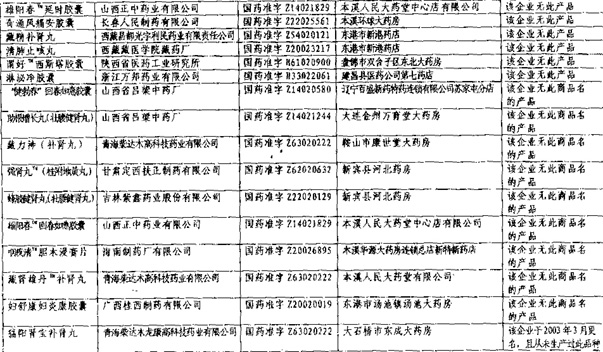 雄阳春™延时胶囊 山西正中药业有限公司 国药准字Z14021829 本溪人民大药堂中心店有限公司 该企业无此产品
奇通风痛安胶囊 长春人民制药有限公司 国药准字Z22025561 本溪环球大药房 该企业无此产品
藏精补肾丸 西藏昌都光宇利民药业有限责任公司 国药准字Z54020121 东港市新港药店 该企业无此产品
清肺止咳丸 西藏藏医学院藏药厂 国药准字Z20023217 东港市新港药店 该企业无此产品
西斯塔胶囊 陕西省医药工业研究所 国药准字H61020900 盘锦市双台子区东北大药房 该企业无此产品
淋泌净胶囊 浙江万邦药业有限公司 国药准字H33022061 建昌县医药公司第七药店 该企业无此产品
回春如意胶囊 山西省吕梁中药厂 国药准字Z14020580 辽宁百盛新药特药连锁有限公司苏家屯分店 该企业无此商品名
的产品
山西省吕梁中药厂 国药准字Z14021244 大连金州万育堂大药房 该企业无此商品名
的产品
藏力神（补肾丸） 青海柴达木高科技药业有限公司 国药准字Z63020222 鞍山市康世堂大药房 该企业无此商品名
的产品
（桂附地黄丸） 甘肃定西扶正制药有限公司 国药准字Z62020632 新宾县河北药房 该企业无此商品名
的产品
吉林紫鑫药业股份有限公司 国药准字Z22020129 新宾县河北药房 该企业无此商品名
的产品
雄阳春™回春如意胶囊 山西正中药业有限公司 国药准字Z14021829 本溪人民大药堂中心店有限公司 该企业无此商品名
的产品
胆木浸膏片 海南制药厂有限公司 国药准字Z20026895 本溪华源大药房连锁总店新特新药店 该企业无此商品名
的产品
藏肾雄丹™补肾丸 青海柴达木高科技药业有限公司 国药准字Z63020222 本溪人民大药堂有限公司 该企业无此商品名
的产品
妇舒康妇炎康胶囊 广西桂西制药有限公司 国药准字Z20020019 东港市汤池镇汤池大药房 该企业无此商品名
的产品
肾宝补肾丸 青海柴达木龙康高科技药业有限公司 国药准字Z63020222 大石桥市东成大药房 该企业于2003年3月更
名，且从未生产过此品种